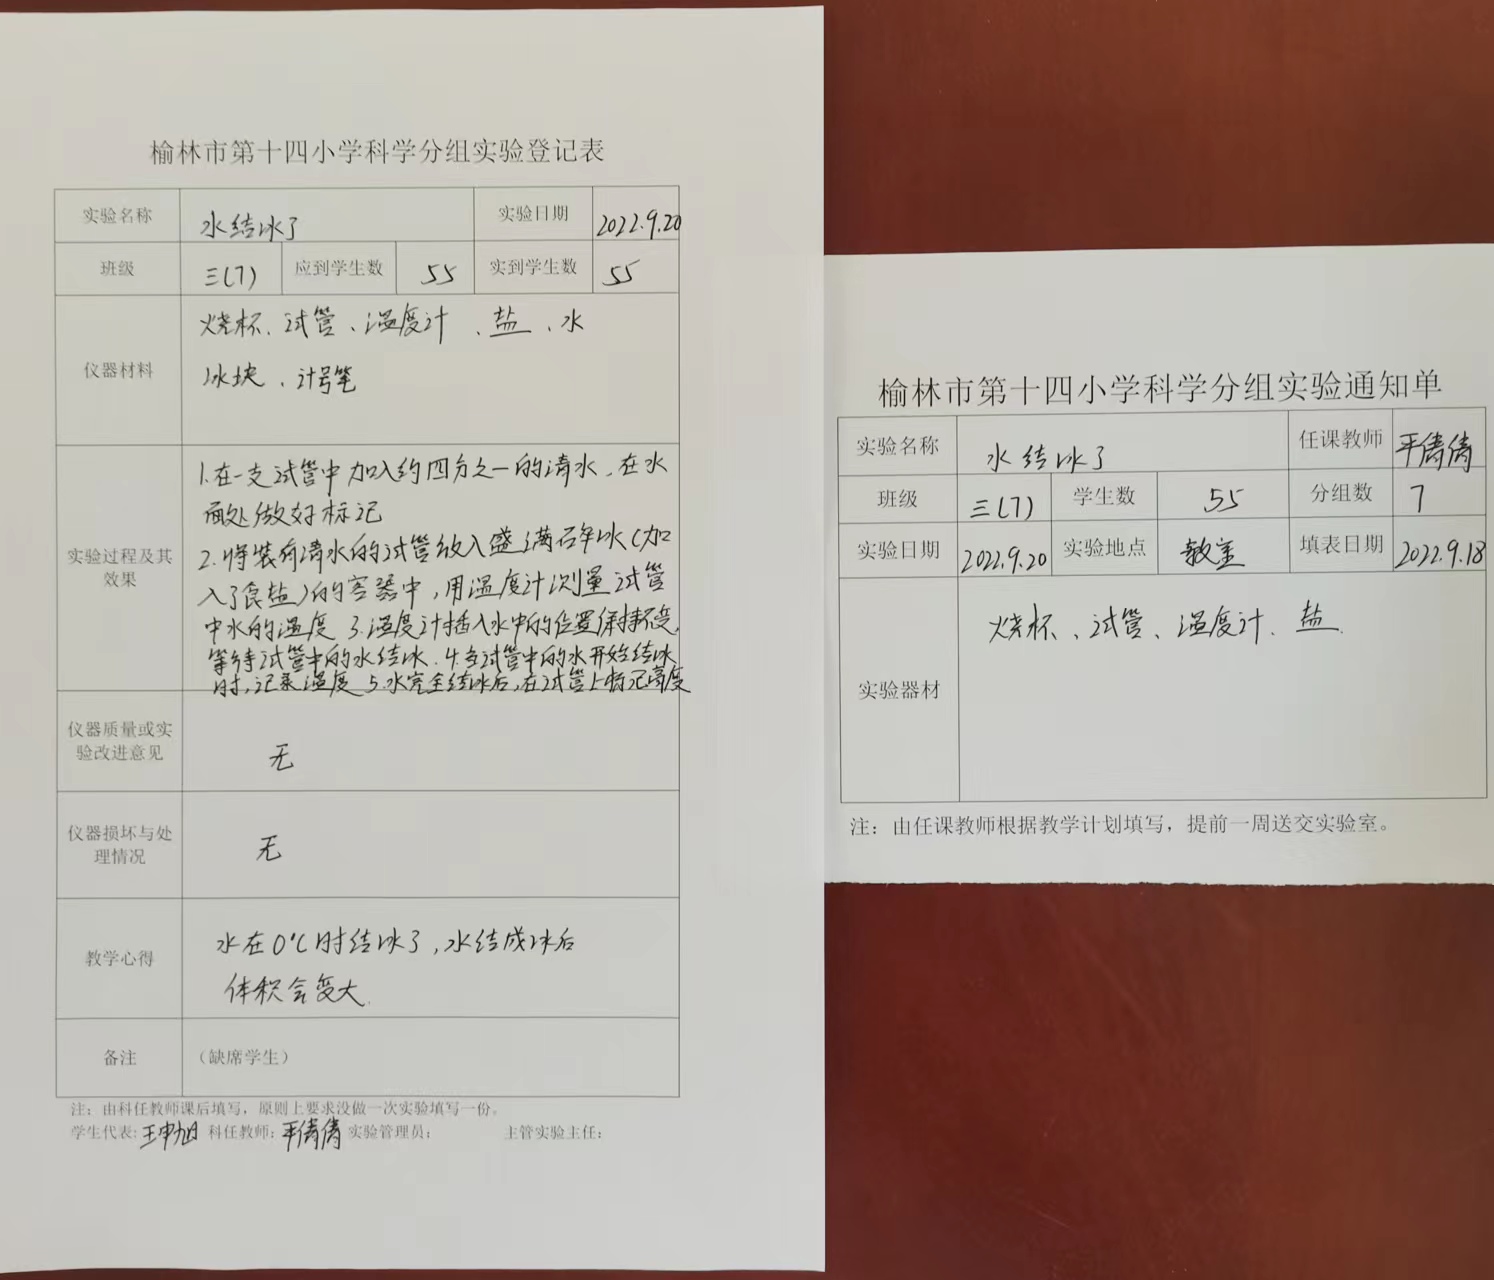 榆林市第十四小学科学分组实验登记表
实验名称 水结冰了 实验日期 2022.9.20
班级 三(7) 应到学生数 55 实到学生数 55
仪器材料
烧杯、试管、温度计、盐、水
冰块、计号笔
实验过程及其
效果
1.在一支试管中加入约四分之一的清水,在水
面处做好标记
2.将装有清水的试管放入盛满碎冰(加
入了食盐)的容器中,用温度计测量试管
中水的温度 3.温度计插入水中的位置保持不变,
等待试管中的水结冰.4.当试管中的水开始结冰
时,记录温度 5.水完全结冰后,在试管上标记高度
仪器质量或实
验改进意见
无
仪器损坏与处
理情况
无
教学心得
水在0℃时结冰了,水结成冰后
体积会变大.
备注 (缺席学生)
注:由科任教师课后填写,原则上要求没做一次实验填写一份。
学生代表: 王申旭 科任教师: 平倩倩 实验管理员: 主管实验主任:
榆林市第十四小学科学分组实验通知单
实验名称 水结冰了 任课教师 平倩倩
班级 三(7) 学生数 55 分组数 7
实验日期 2022.9.20 实验地点 教室 填表日期 2022.9.18
实验器材
烧杯、试管、温度计、盐.
注:由任课教师根据教学计划填写,提前一周送交实验室。